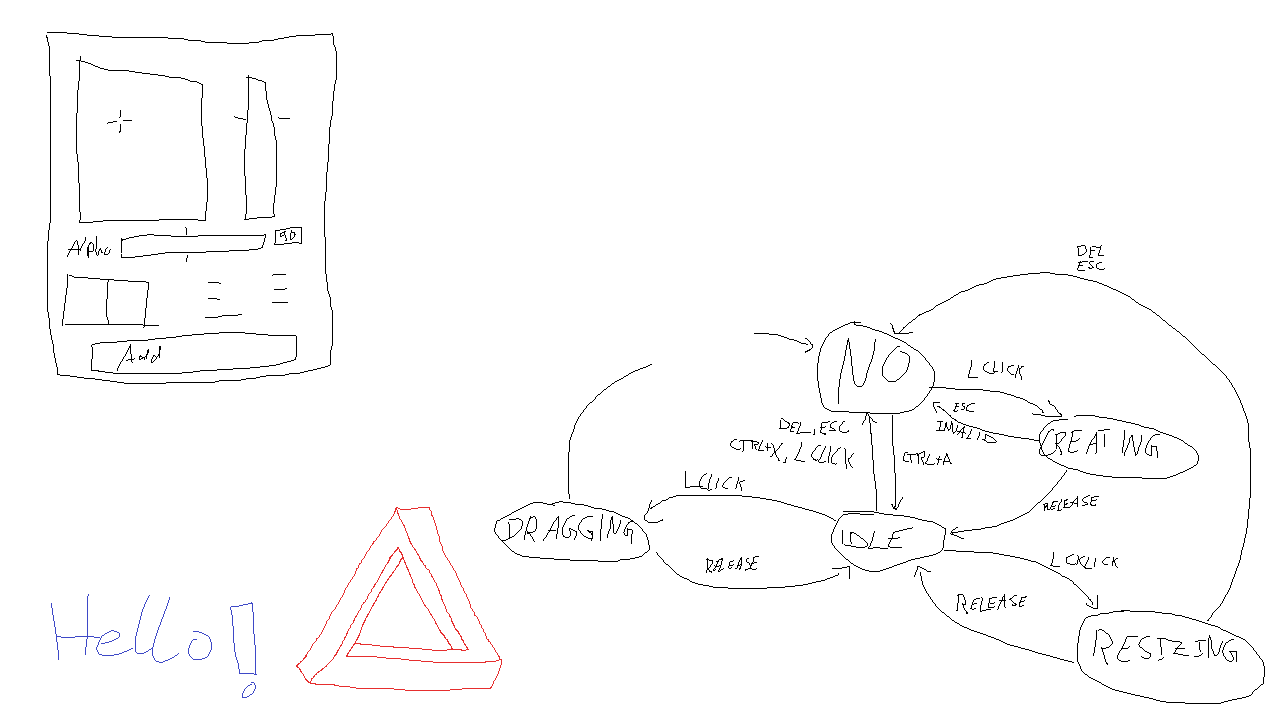 Alpha
90
Add
DEL
ESC
NO
LCLICK
ESC
INVALID
CREATING
DEL, ESC
CTRL+X, LCLICK
CTRL+A
LCLICK
RELEASE
DRAGGING
IDLE
RELEASE
LCKLICK
RELEASE
RESIZING
Hello!